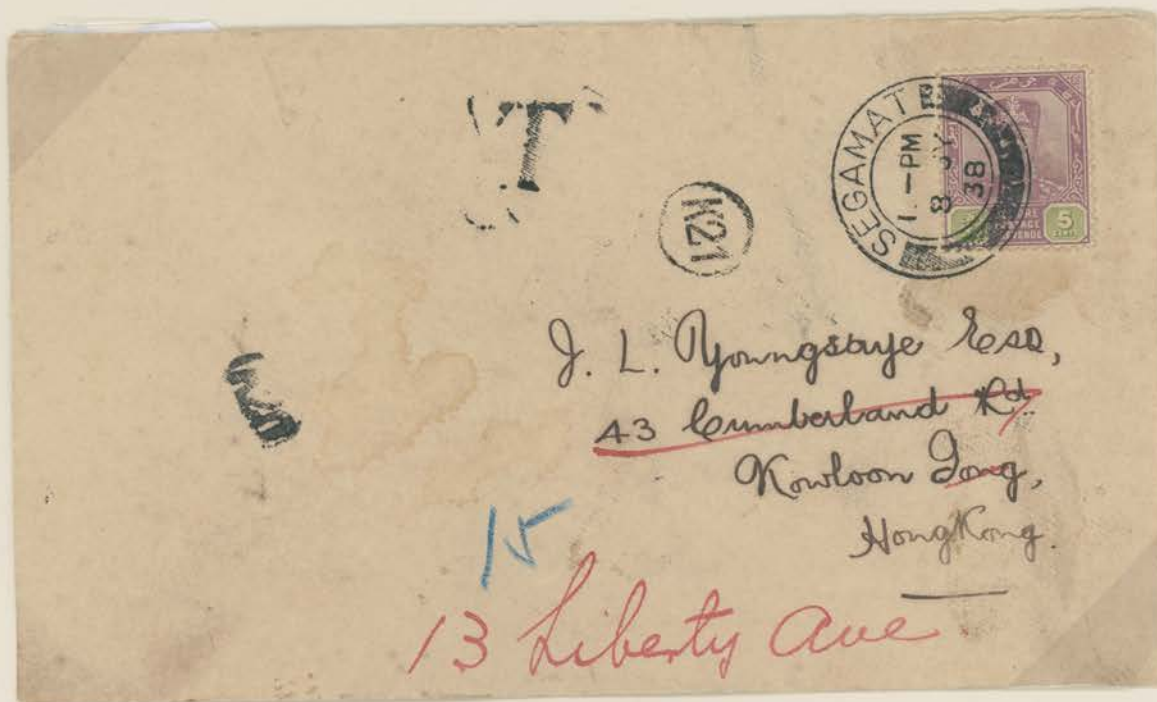 T
K21
SEGAMAT
1 - PM
8 JY
38
POSTAGE
5
CENTS
J. L. Youngsaye Esq,
43 Cumberland Rd.
Kowloon Tong,
HongKong.
15
13 Liberty Ave